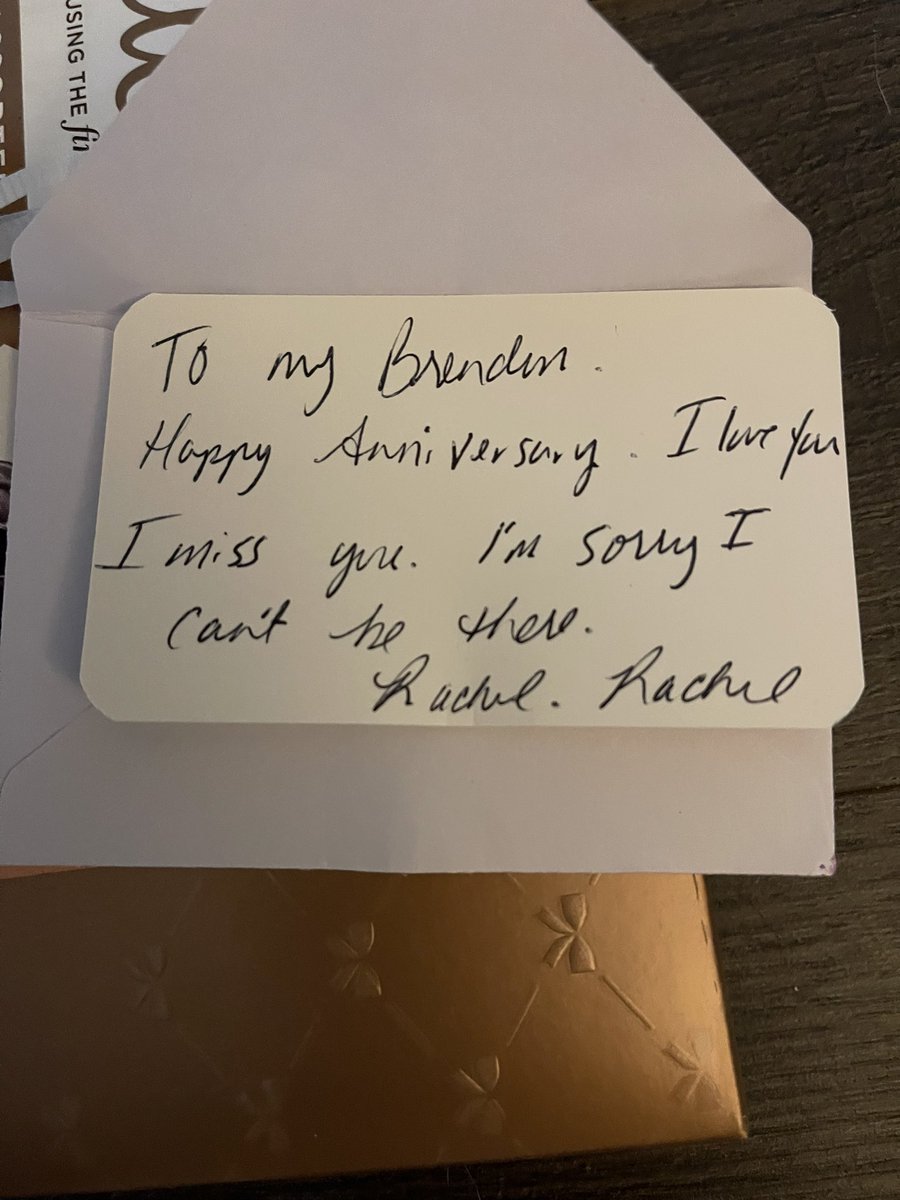 USING THE fin
To my Brendan.
Happy Anniversary. I love you
I miss you. I'm sorry I
can't be there.
Rachel. Rachel